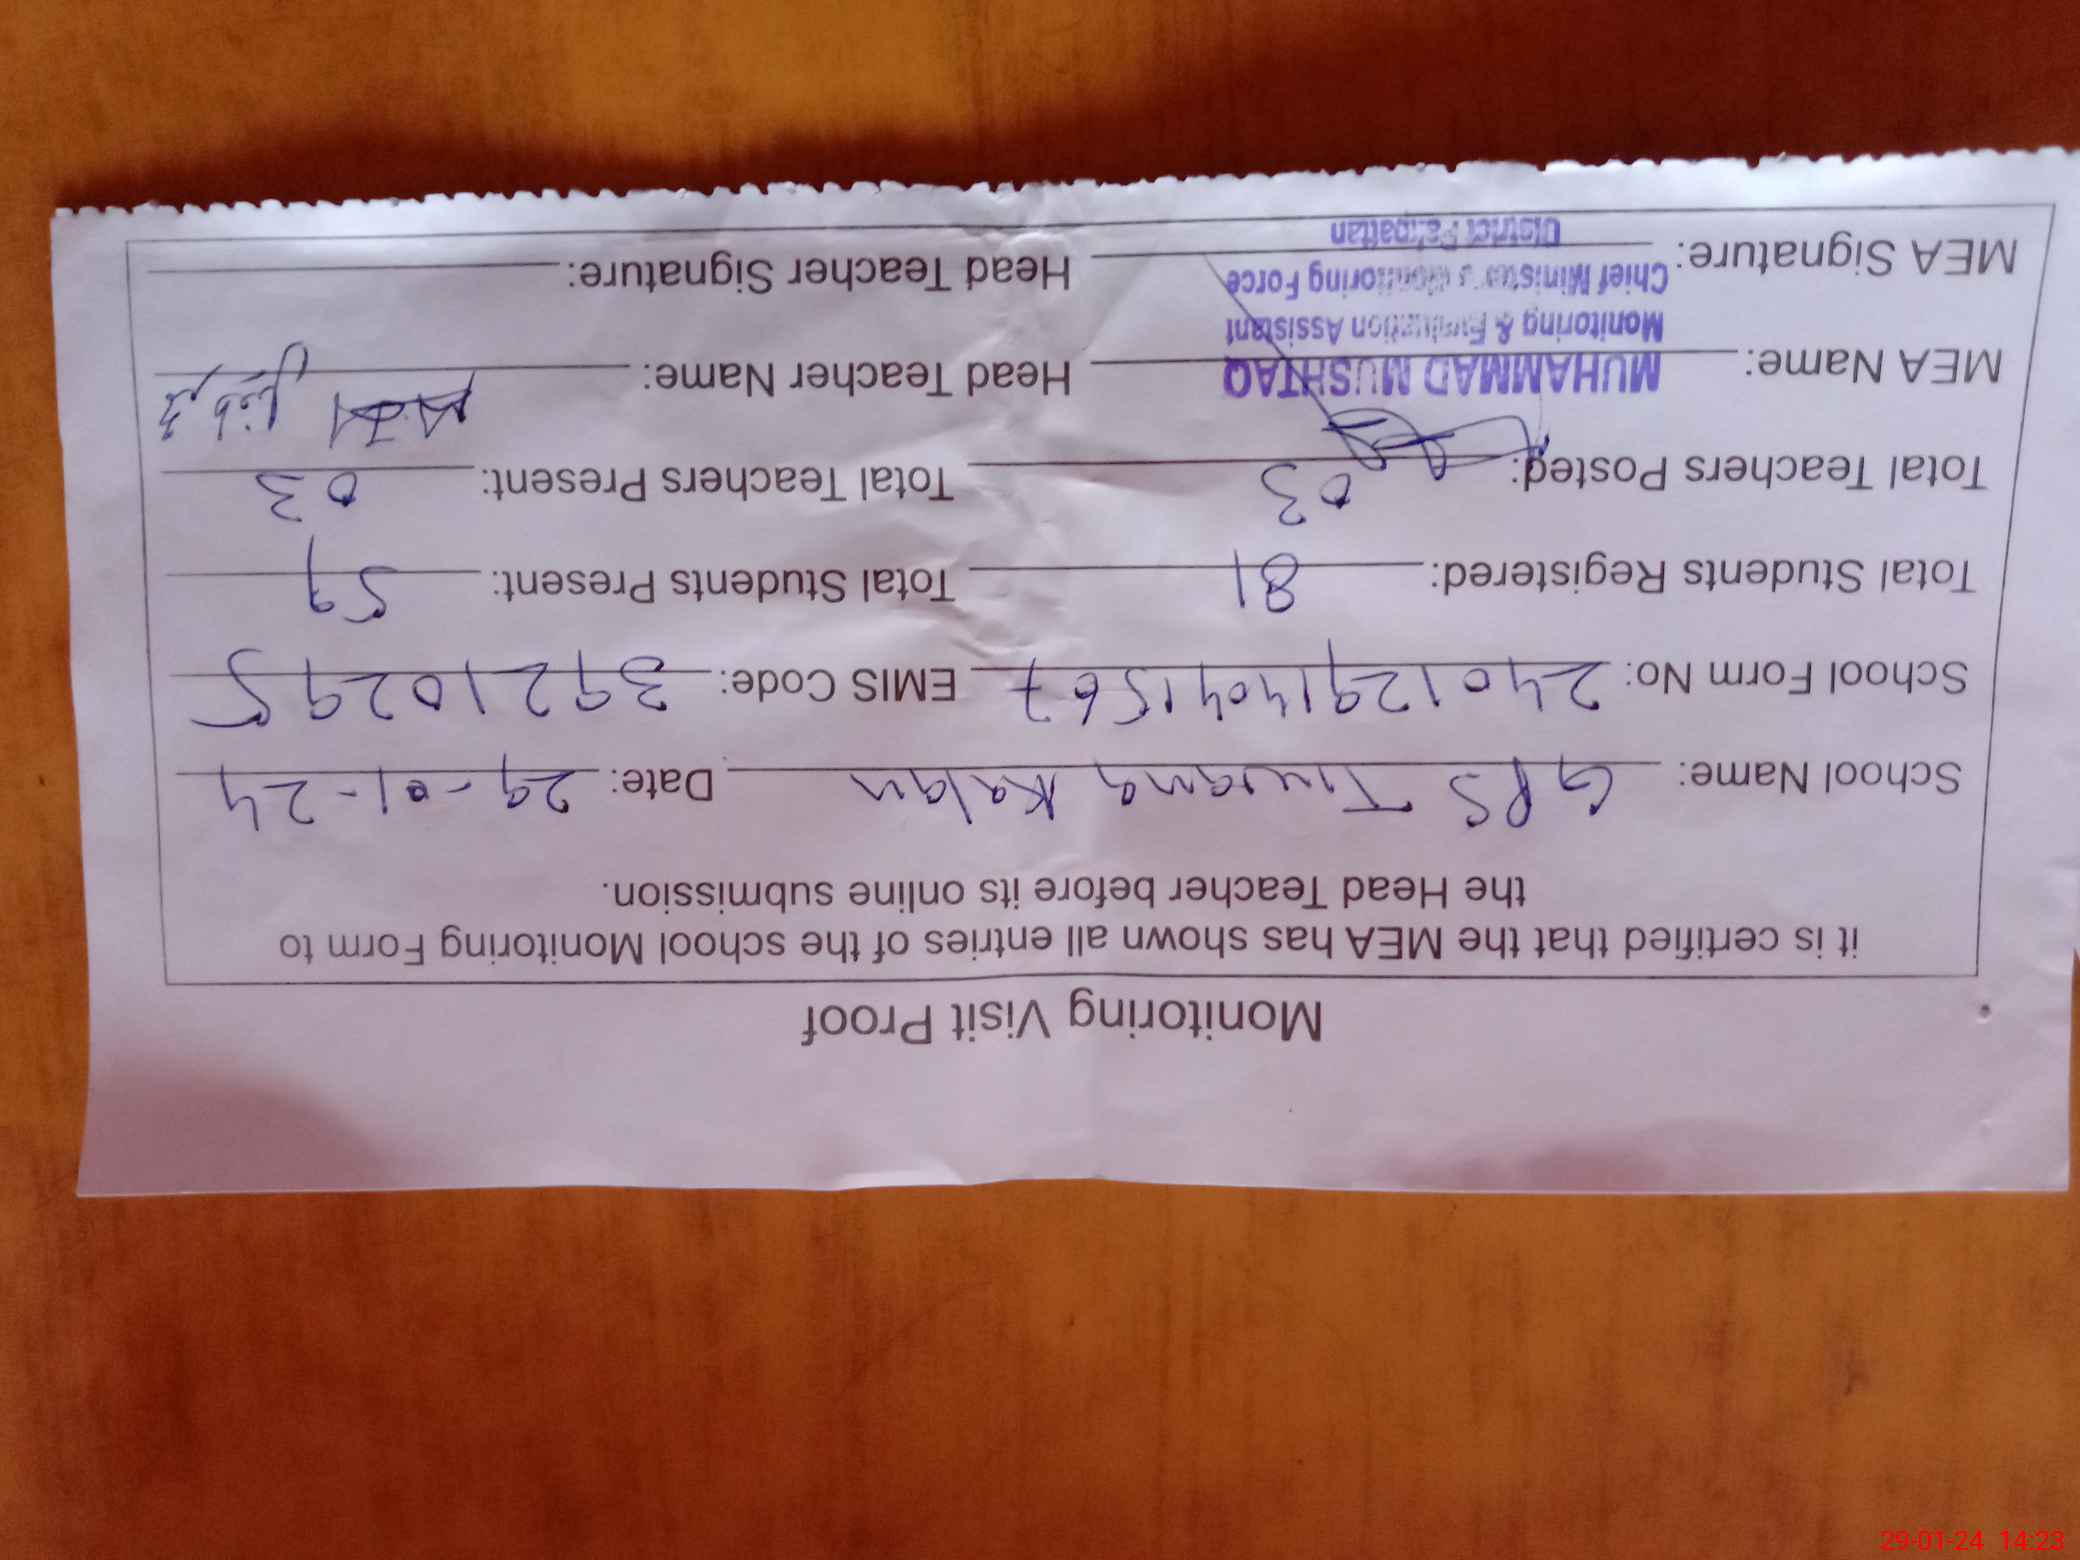 Monitoring Visit Proof
it is certified that the MEA has shown all entries of the school Monitoring Form to
the Head Teacher before its online submission.
School Name: GPS Tiwana Kalan Date: 29-01-24
School Form No: 24012914041567 EMIS Code: 39210295
Total Students Registered: 81 Total Students Present: 59
Total Teachers Posted: 03 Total Teachers Present: 03
MEA Name: MUHAMMAD MUSHTAQ Head Teacher Name:
Monitoring & Evaluation Assistant
Chief Minister's Monitoring Force
MEA Signature: Head Teacher Signature:
District Pakpattan
29-01-24 14:23